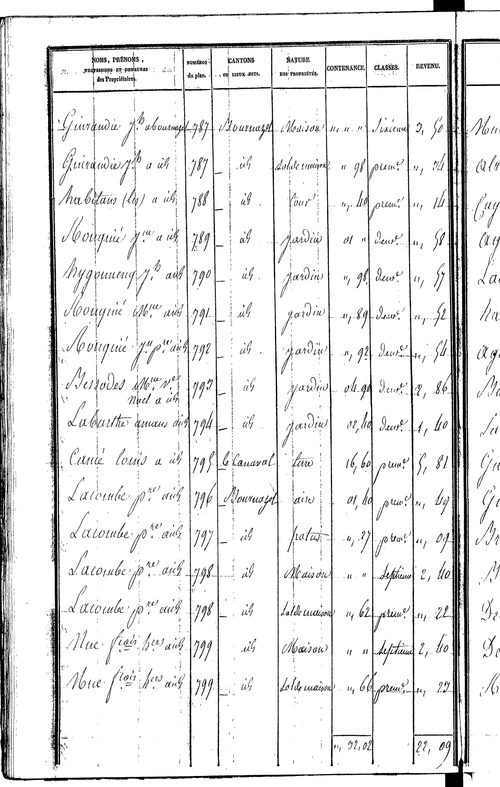 NOMS, PRÉNOMS, PROFESSIONS ET DEMEURES des Propriétaires. NUMÉROS du plan. CANTONS OU LIEUX DITS. NATURE DES PROPRIÉTÉS. CONTENANCE. CLASSES. REVENU.
Guiraudie jh a bournazel 787 Bournazel Maison " " " Sixieme 3, 50
Guiraudie jh a id 787 id sol de maison " 98 premr. ", 34
habitans (les) a id 788 id four ", 40 premr. ", 14
Rouquié jn a id 789 id jardin 01 " deuxe. ", 58
hygounenq jh aud 790 id jardin ", 98 deuxe. ", 57
Rouquié aud 791 id jardin ", 89 deuxe. ", 52
Rouquié jn pre aud 792 id jardin ", 92 deuxe. ", 54
Bessodes ve 793 id jardin 04 90 deuxe. 2, 86
noel a id
Labarthe amans aud 794 id jardin 02, 40 deuxe. 1, 40
Canié louis a id 795 le Canaval terre 16, 60 premr. 5, 81
Lacombe pre aud 796 Bournazel aire 01, 40 premr. ", 49
Lacombe pre aud 797 id patus ", 27 premr. ", 09
Lacombe pre aud 798 id Maison " " septieme 2, 40
Lacombe pre aud 798 id sol de maison ", 62 premr. ", 22
Mue frois hers aud 799 id Maison " " septieme 2, 40
Mue frois hers aud 799 id sol de maison ", 66 premr. ", 23
", 32, 02 22, 09